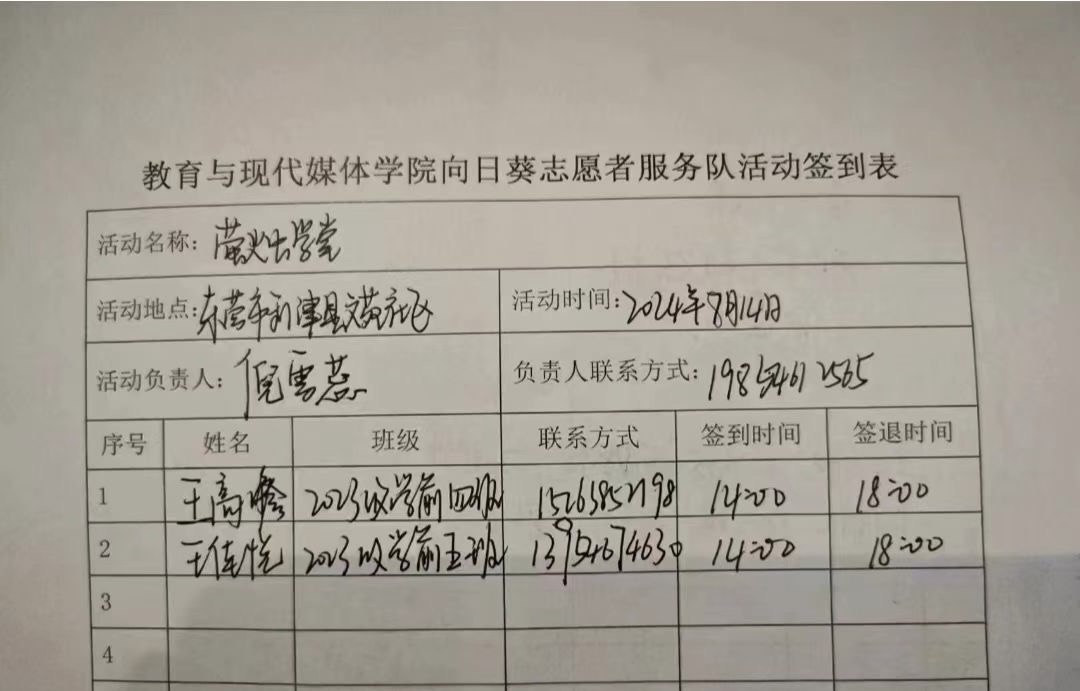 教育与现代媒体学院向日葵志愿者服务队活动签到表
活动名称：萤火大学堂
活动地点：东营市利津县文苑社区 活动时间：2024年8月14日
活动负责人：倪雪蕊 负责人联系方式：
序号 姓名 班级 联系方式 签到时间 签退时间
1 王高 2023级学前四班 15263852198 14:00 18:00
2 王佳悦 2023级学前五班 13954674630 14:00 18:00
3
4